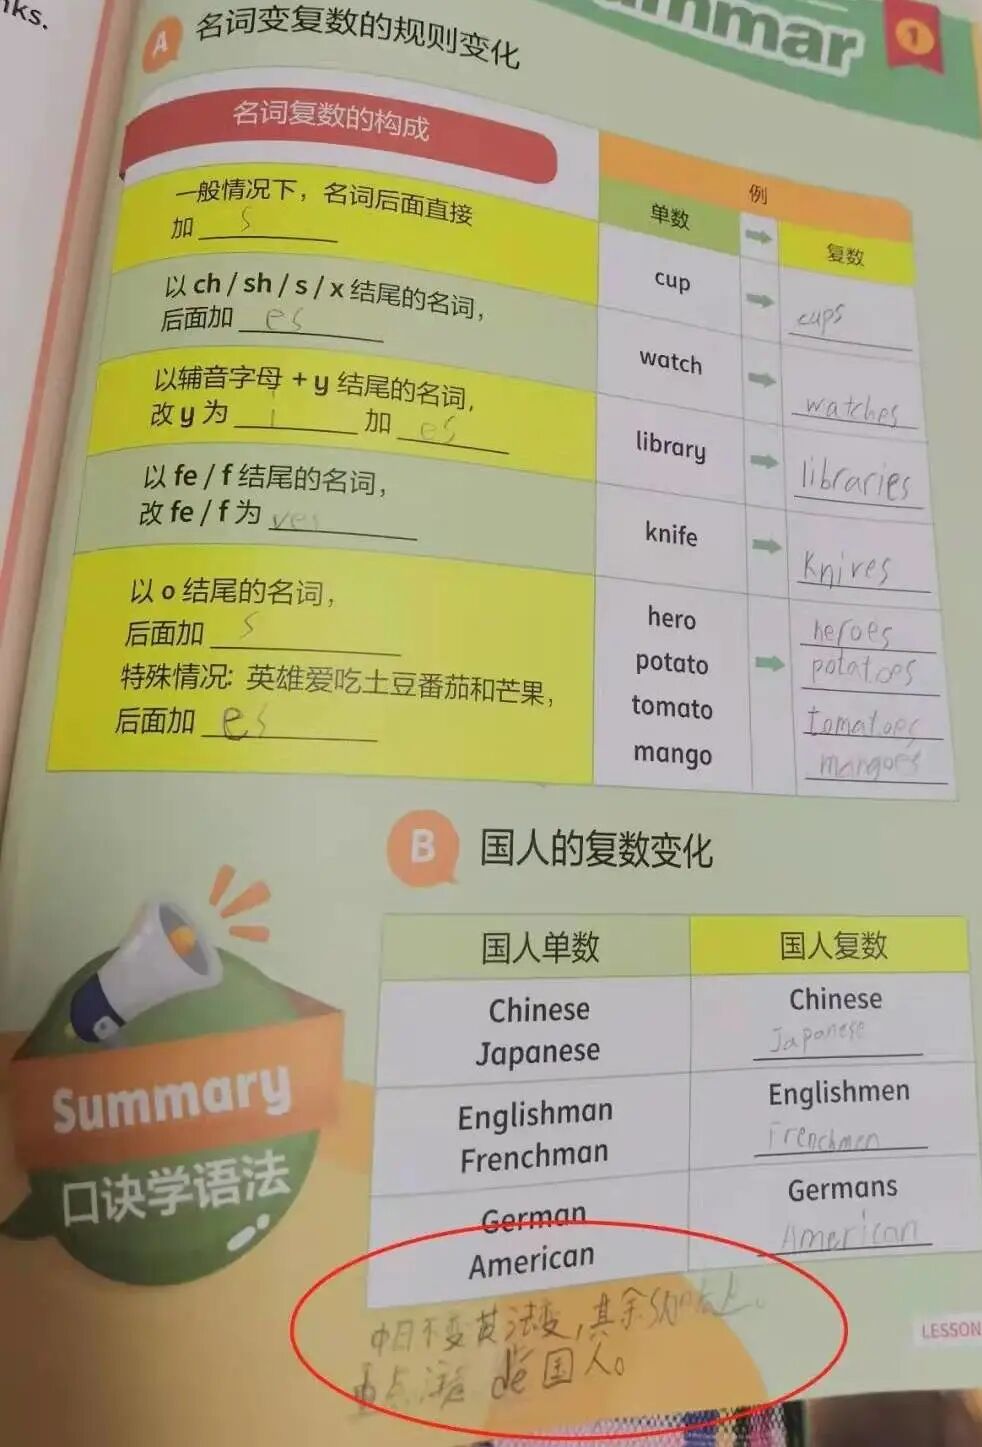 nks.
mmar
1
A 名词变复数的规则变化
名词复数的构成
例
单数
复数
一般情况下，名词后面直接
加 s
cup
cups
以 ch / sh / s / x 结尾的名词，
后面加 es
watch
watches
以辅音字母 + y 结尾的名词，
改 y 为 i 加 es
library
libraries
以 fe / f 结尾的名词，
改 fe / f 为 ves
knife
knives
以 o 结尾的名词，
后面加 s
特殊情况：英雄爱吃土豆番茄和芒果，
后面加 es
hero
heroes
potato
potatoes
tomato
tomatoes
mango
mangoes
B 国人的复数变化
国人单数
国人复数
Chinese
Chinese
Japanese
Japanese
Englishman
Englishmen
Frenchman
Frenchmen
German
Germans
American
American
Summary
口诀学语法
中日不变英法变，其余s加后上。
重点注意 de国人。
LESSON